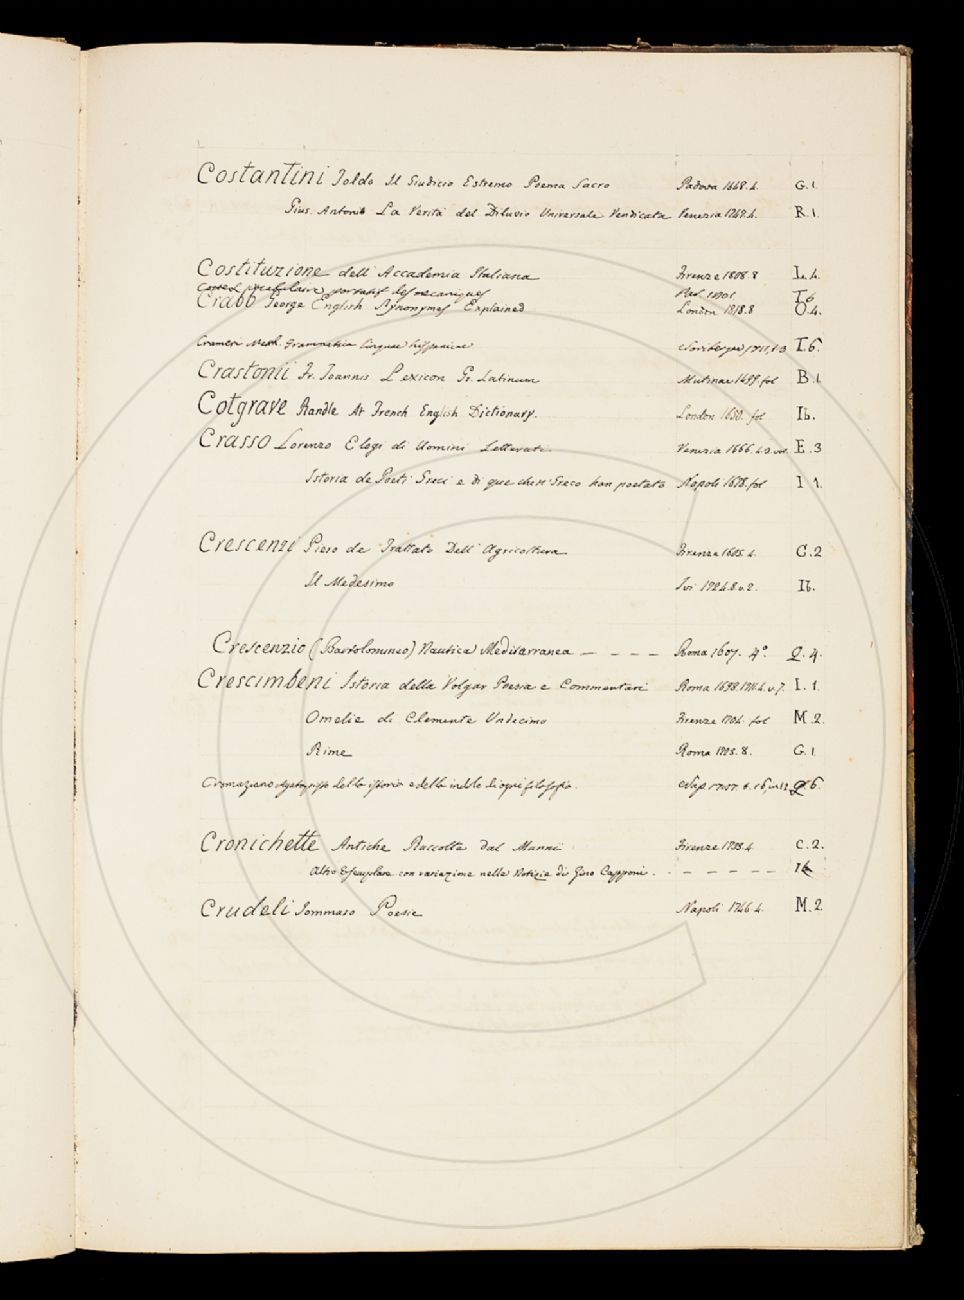 Costantini Toldo Il Giudicio Estremo Poema Sacro Padova 1648.4. G.1.
Gius. Antonio La Verità del Diluvio Universale Vendicata Venezia 1747.4. R.1.
Costituzione dell' Accademia Italiana Firenze 1808.8 L.4.
portatif des mecaniques T.6
Crabb George English Synonymes Explained London 1818.8 O.4.
Crameri Math. Grammatica linguae hispanicae T.6.
Crastonii Fr. Joannis Lexicon Gr. Latinum Mutinae 1499. fol B.1
Cotgrave Randle At French English Dictionary. London 1650. fol Ib.
Crasso Lorenzo Elogi di Uomini Letterati. Venezia 1666.4.2.vol. E.3
Istoria de Poeti Greci e di que che in Greco han poetato Napoli 1678. fol I 1.
Crescenzi Piero de Trattato Dell' Agricoltura Firenze 1605.4. C.2
Il Medesimo Ivi 1724.8.v.2. Ib.
Crescenzio (Bartolommeo) Nautica Mediterranea — — — — Roma 1607. 4° Q.4.
Crescimbeni Istoria della Volgar Poesia e Commentari Roma 1698.1711.4.v.7. I.1.
Omelie di Clemente Undecimo Firenze 1704. fol M.2.
Rime Roma 1723.8. G.1.
Cromaziano Agatopisto della istoria e della indole di ogni filosofia. Q.6.
Cronichette Antiche Raccolte dal Manni Firenze 1733.4 C.2.
Altro Esemplare con variazione nelle Notizie di Gino Capponi. - — — — — — — Ib
Crudeli Tommaso Poesie Napoli 1746.4. M.2.